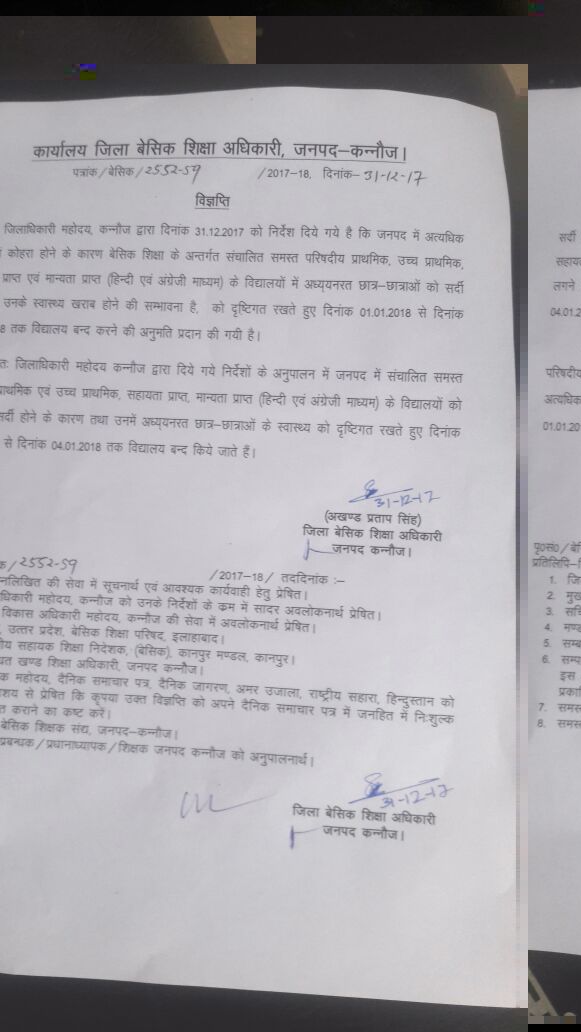 कार्यालय जिला बेसिक शिक्षा अधिकारी, जनपद–कन्नौज।
पत्रांक/बेसिक/2552-59 /2017-18, दिनांक– 31-12-17
विज्ञप्ति
जिलाधिकारी महोदय, कन्नौज द्वारा दिनांक 31.12.2017 को निर्देश दिये गये है कि जनपद में अत्यधिक
कोहरा होने के कारण बेसिक शिक्षा के अन्तर्गत संचालित समस्त परिषदीय प्राथमिक, उच्च प्राथमिक,
प्राप्त एवं मान्यता प्राप्त (हिन्दी एवं अंग्रेजी माध्यम) के विद्यालयों में अध्ययनरत छात्र–छात्राओं को सर्दी
उनके स्वास्थ्य खराब होने की सम्भावना है, को दृष्टिगत रखते हुए दिनांक 01.01.2018 से दिनांक
8 तक विद्यालय बन्द करने की अनुमति प्रदान की गयी है।
तः जिलाधिकारी महोदय कन्नौज द्वारा दिये गये निर्देशों के अनुपालन में जनपद में संचालित समस्त
प्राथमिक एवं उच्च प्राथमिक, सहायता प्राप्त, मान्यता प्राप्त (हिन्दी एवं अंग्रेजी माध्यम) के विद्यालयों को
सर्दी होने के कारण तथा उनमें अध्ययनरत छात्र–छात्राओं के स्वास्थ्य को दृष्टिगत रखते हुए दिनांक
से दिनांक 04.01.2018 तक विद्यालय बन्द किये जाते हैं।
31-12-17
(अखण्ड प्रताप सिंह)
जिला बेसिक शिक्षा अधिकारी
जनपद कन्नौज।
क/2552-59 /2017-18/ तददिनांक :–
नलिखित की सेवा में सूचनार्थ एवं आवश्यक कार्यवाही हेतु प्रेषित।
धिकारी महोदय, कन्नौज को उनके निर्देशों के क्रम में सादर अवलोकनार्थ प्रेषित।
विकास अधिकारी महोदय, कन्नौज की सेवा में अवलोकनार्थ प्रेषित।
, उत्तर प्रदेश, बेसिक शिक्षा परिषद, इलाहाबाद।
ीय सहायक शिक्षा निदेशक, (बेसिक), कानपुर मण्डल, कानपुर।
खण्ड शिक्षा अधिकारी, जनपद कन्नौज।
क महोदय, दैनिक समाचार पत्र, दैनिक जागरण, अमर उजाला, राष्ट्रीय सहारा, हिन्दुस्तान को
शय से प्रेषित कि कृपया उक्त विज्ञप्ति को अपने दैनिक समाचार पत्र में जनहित में निःशुल्क
त कराने का कष्ट करें।
बेसिक शिक्षक संघ, जनपद–कन्नौज।
प्रबन्धक/प्रधानाध्यापक/शिक्षक जनपद कन्नौज को अनुपालनार्थ।
31-12-17
जिला बेसिक शिक्षा अधिकारी
जनपद कन्नौज।
सर्दी
सहाय
लगने
04.01.2
परिषदीय
अत्यधिक
01.01.20
पृ०सं०/बे
प्रतिलिपि–
1. जि
2. मुख
3. सचि
4. मण्ड
5. सम्ब
6. सम्पा
इस
प्रका
7. समस
8. समस